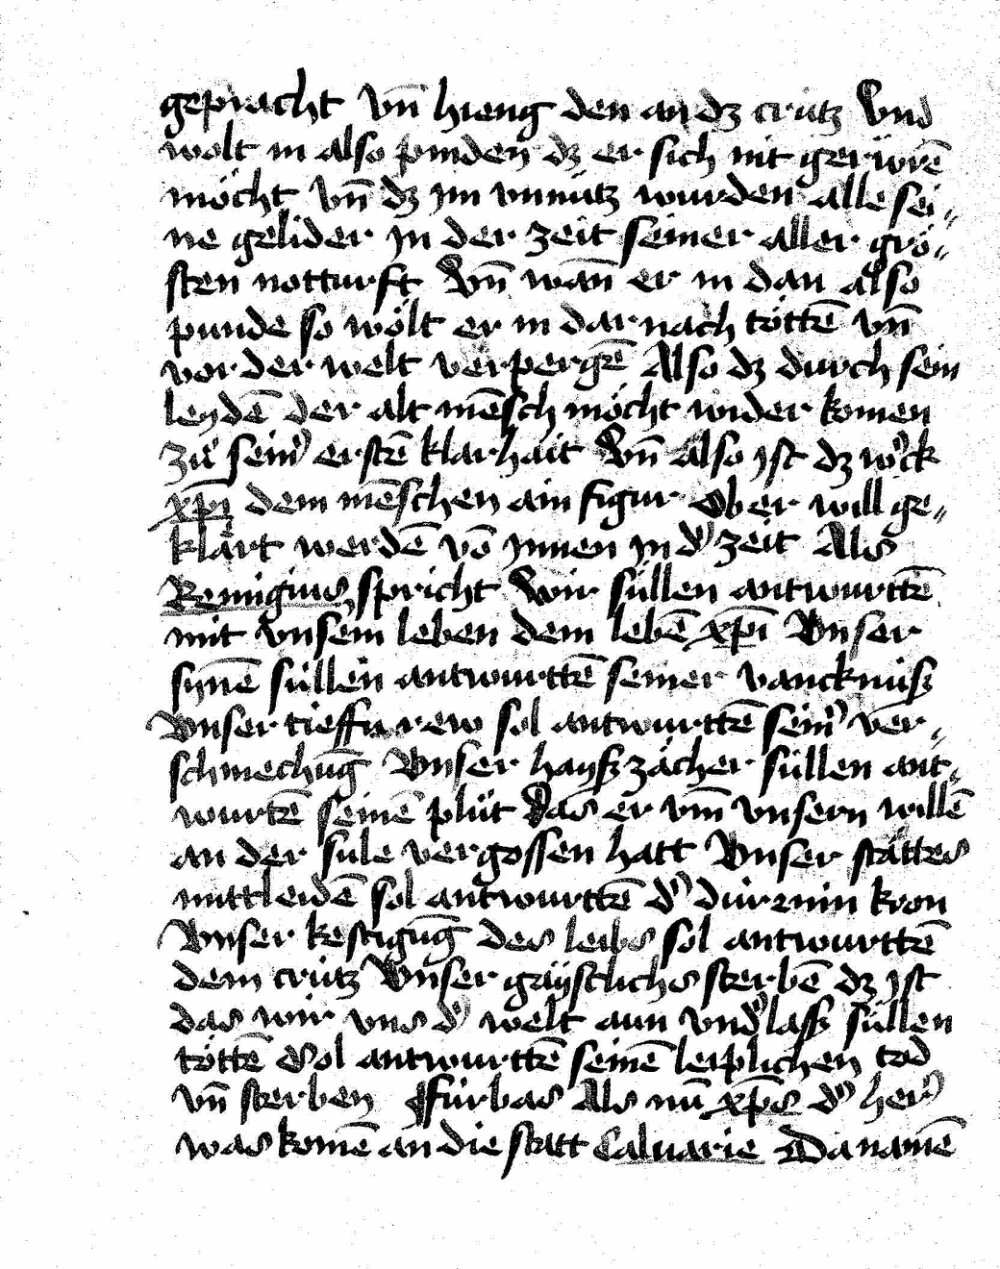 gepracht vn̄ hieng den an dz crütz Vnd
wolt in also pinden dz er sich nit gerüren̄
möcht vn̄ dz im vnnütz wurden alle sei⸗
ne gelider jn der zeit seiner aller grö⸗
sten notturft Vn̄ wan̄ er in dan also
punde so wölt er in dar nach tötten̄ vn̄
vor der welt verpergē Also dz durch sein
leydē der alt mēsch möcht wider komen
zü seinᵉ erstē klarhait Vn̄ also jst dz wᵉck
xp̄i dem mēschen ain figur Aber will ge⸗
klärt werdē vō jnnen jn dᵉ zeit Als
Remigius spricht Wir süllen antwurttē
mit vnsem leben dem lebē xp̄i Vnser
synē süllen antwurttē seiner vancknuß
Vnser tieffu rew sol antwurttē seinᵉ ver⸗
schmechūg Vnser hayß zächer süllen ant⸗
wurtē seinē plüt Das er vm̄ vnsern willē
an der sule vergossen hatt Vnser stättes
mittleidē sol antwurttē dᵉ dürnnin kron
Vnser kestigūg des leibs sol antwurttē
dem crütz Vnser gaystlichs sterbē dz jst
das wir vns dᵉ welt aun vndᵉlaß süllen
töttē Sol antwurttē seinē leiplichen tod
vn̄ sterben ¶ fürbas Als nū xp̄s dᵉ herᵉ
was komē an die statt Caluarie Da namē